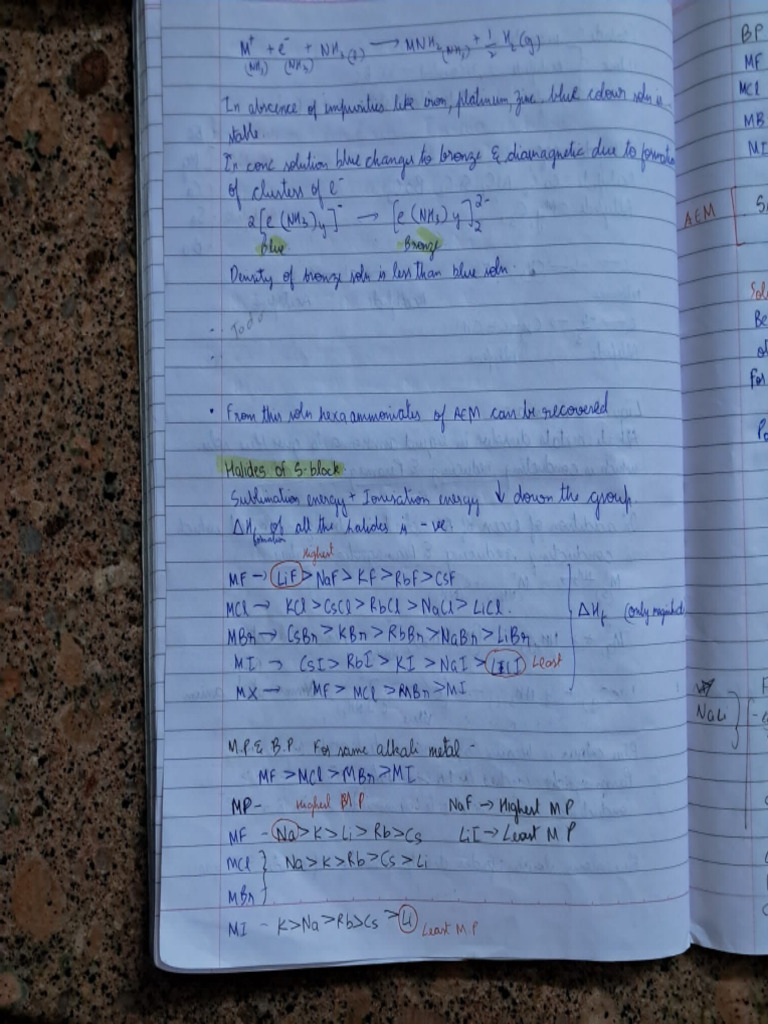 M⁺ + e⁻ + NH₃(l) → MNH₂(NH₃) + ½ H₂(g)
(NH₃) (NH₃)
In absence of impurities like iron, platinum, zinc blue colour soln is
stable.
In conc solution blue changes to bronze & diamagnetic due to
of clusters of e⁻
2[e(NH₃)y]⁻ → [e(NH₃)y]₂²⁻
Blue Bronze
Density of bronze soln is less than blue soln.
• From this soln hexaammoniates of AEM can be recovered
Halides of S-block
Sublimation energy + Ionisation energy ↓ down the group.
ΔHf of all the halides is -ve.
formation
Highest
MF → LiF > NaF > KF > RbF > CsF
MCl → KCl > CsCl > RbCl > NaCl > LiCl.
MBr → CsBr > KBr > RbBr > NaBr > LiBr
ΔHf (only
MI → CsI > RbI > KI > NaI > LiI Least
MX → MF > MCl > MBr > MI
M.P. & B.P. For same alkali metal -
MF > MCl > MBr > MI
MP - Highest MP NaF → Highest MP
MF - Na > K > Li > Rb > Cs LiI → Least MP
MCl } Na > K > Rb > Cs > Li
MBr
MI - K > Na > Rb > Cs > Li Least MP
BP
MF
MCl
MB
MI
AEM
Be
of
For